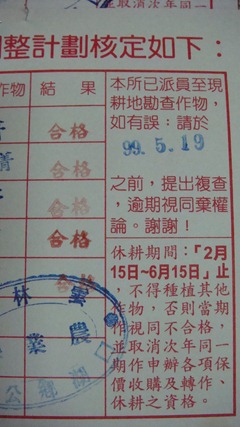 並取消次年同一
調整計劃核定如下：
作物 結果
合格
合格
合格
合格
合格
本所已派員至現
耕地勘查作物，
如有誤：請於
99.5.19
之前，提出複查
，逾期視同棄權
論。謝謝！
休耕期間：「2月
15日~6月15日」止
，不得種植其他
作物，否則當期
作視同不合格，
並取消次年同一
期作申辦各項保
價收購及轉作、
休耕之資格。
雲林
農業
公